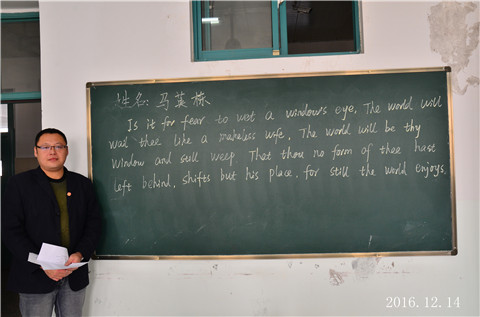 姓名：马英栋
Is it for fear to wet a window's eye, The world will
wail thee like a makeless wife, The world will be thy
window and still weep That thou no form of thee hast
left behind, shifts but his place, for still the world enjoys.
2016.12.14